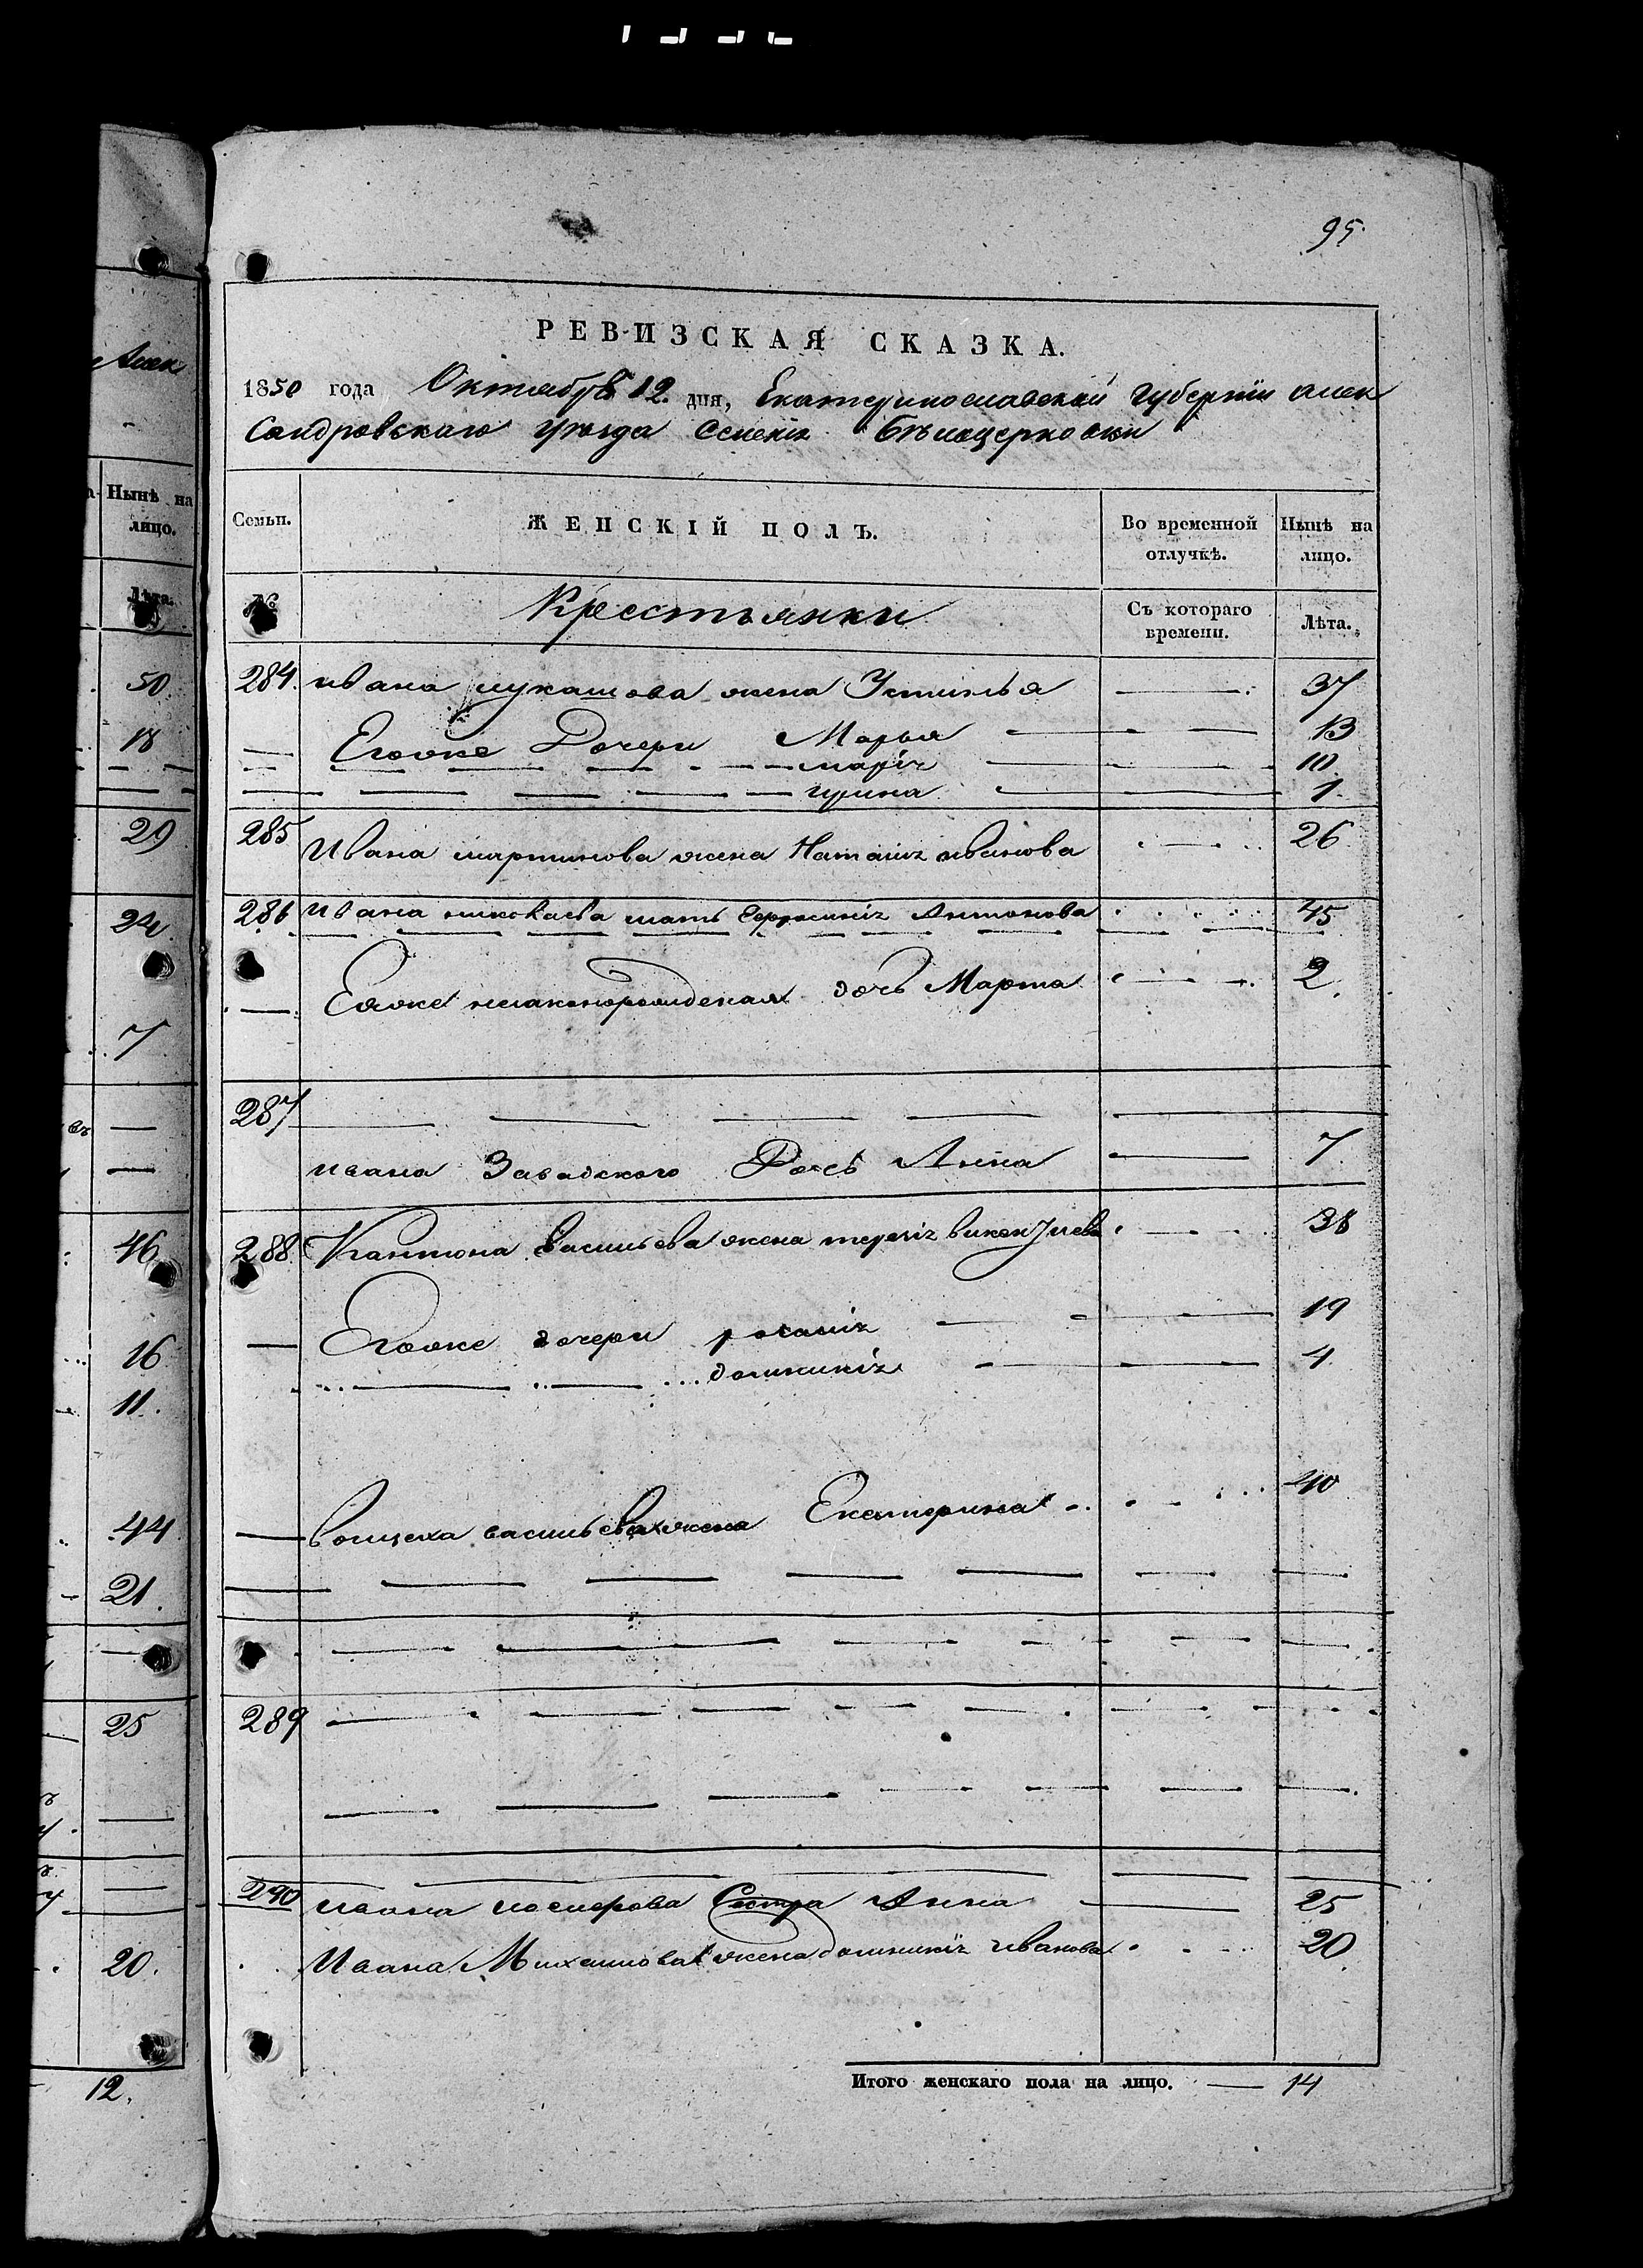 95.
РЕВИЗСКАЯ СКАЗКА.
1850 года Октября 12. дня, Екатеринославской Губернии Алек
Сандровского уѣзда Селенія Бѣлоцерковки
Семьи. ЖЕНСКІЙ ПОЛЪ. Во временной отлучкѣ. Нынѣ на лицо.
№ Крестьянки Съ котораго времени. Лѣта.
284. ивана лукашова жена Устинья 37
Егоже Дочери Марья 13
марія 10
ирина 1
285 Ивана мартинова жена Наталія иванова 26
286 Ивана николаева мать Ефросинія Антонова 45
Еяже незаконорожденая дочь Марта 2.
287
ивана Завадского Дочь Анна 7
288. Кантона васильева жена терезія 38
Егоже дочери розалія 19
доминикія 4.
войцеха васильева жена Екатерина 40
289
290 ивана Сестра Анна 25
Ивана Михаилова жена доминикія иванова 20.
Итого женскаго пола на лицо. — 14
Алек
Нынѣ на
лицо.
Лѣта.
50.
18
29
24.
7
въ
46
16
11.
44
21.
25
20.
12.